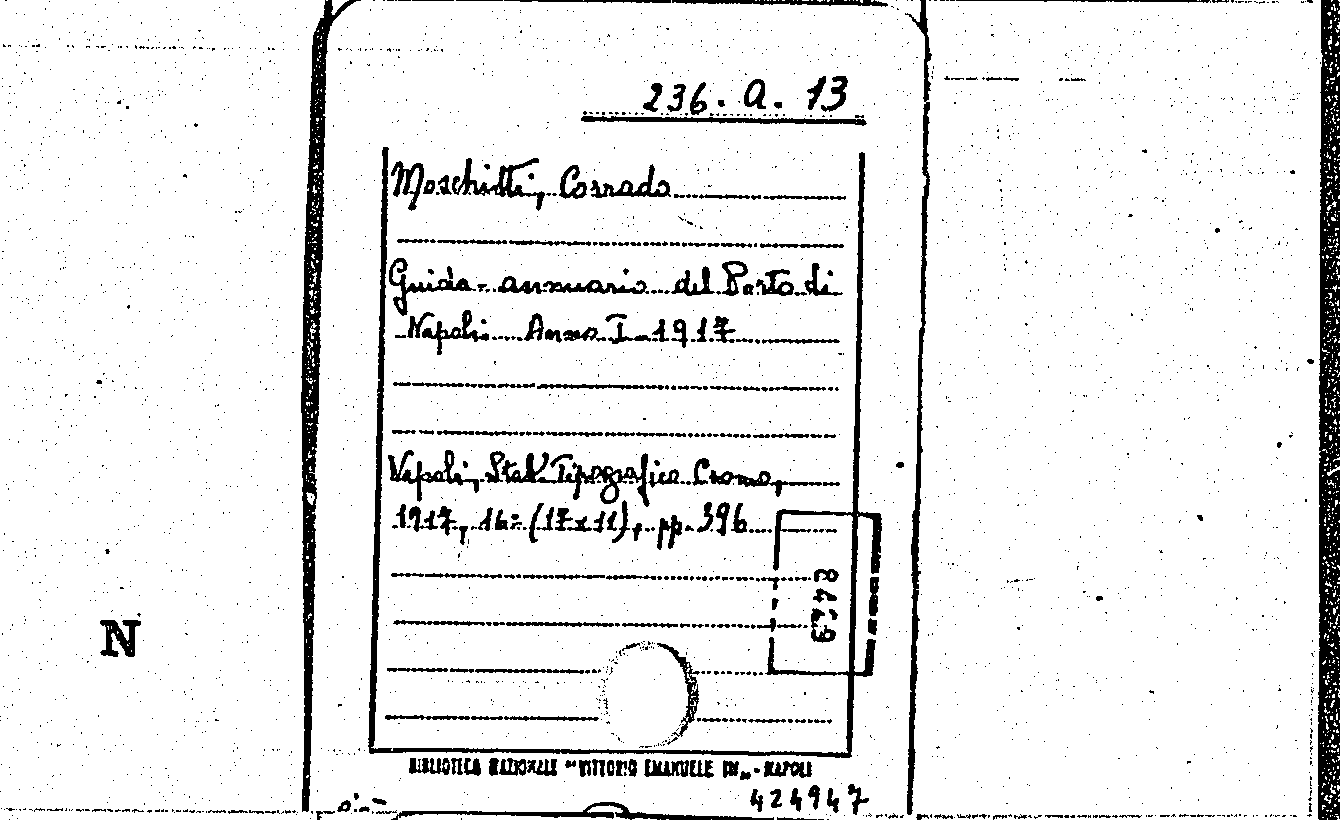 236. a. 13
Moschitti, Corrado
Guida-annuario del Porto di
Napoli. Anno I 1917
Napoli, Stab. Tipografico Cromo,
1917, 16° (17x11), pp. 396
N
BIBLIOTECA NAZIONALE "VITTORIO EMANUELE III„ - NAPOLI
424947